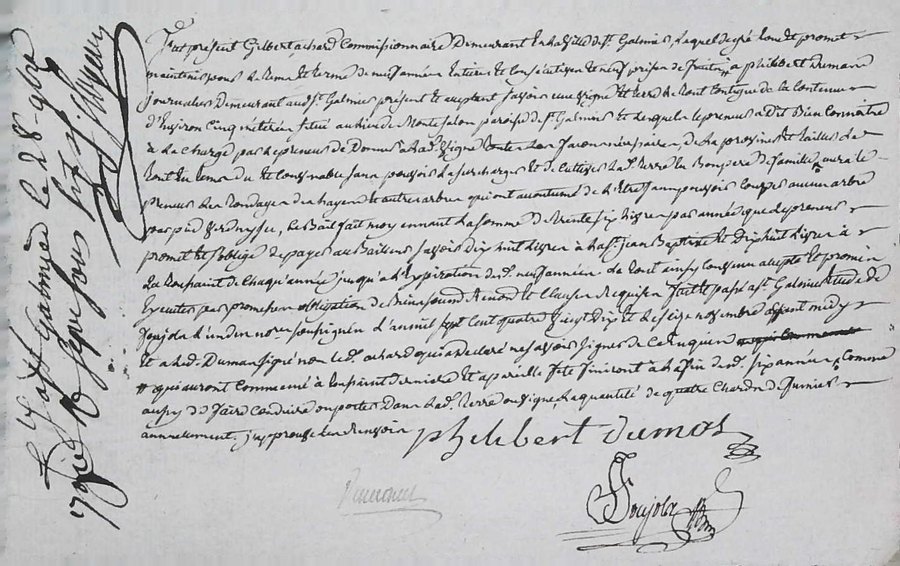 Fut présent Gilbert achard Commissionnaire Demeurant En la ville de st. Galmier, Lequel de gré loue et promet
maintenir pour le tems et terme de neuf années Entieres et Consécutives et neuf prises de fruits # a philibert Dumas
journalier Demeurant aud. st. Galmier présent et acceptant sçavoir une vigne et terre le tout Contigue de la Contenue
d'Environ Cinq méterées situé au lieu de Montesalon paroisse de st. Galmier et lequel le preneur a dit Bien Connoitre
à la Charge par le preneur de Donner à lad. vigne toutes les façons nécessaires, de la proviner et tailler le
tout En tems du et Convenable sans pouvoir la surcharger et de Cultiver lad. terre En Bon pere de famille, aura le
preneur les tondages des hayes et autres arbres qui ont accoutumé de l'Etre sans pouvoir Couper aucun arbre
par pied verd ny sec, le Bail fait moyennant la somme de trente six livres par année que le preneur
promet et s'oblige de payer au Bailleur sçavoir Dix huit livres à la st. jean Baptiste et Dix huit livres à
la toussaint de Chaque année jusqu'a l'Expiration desd. neuf années le tout ainsy Convenu accepté et promis
Executer par promesse obligation de Biens soumis. Renon. et Clauses Requises fait et passé à st. Galmier Etude de
Soujola l'un des nores. soussignés l'an mil sept Cent quatre vingt Dix et le seize novembre avant midy
et a led. Dumas signé non led. achard qui a declaré ne sçavoir signer de Ce Enquis
# qui auront Commencé à toussaint derniere et a pareille fete finiront à la fin desd. six années. Comme
aussy de faire Conduire ou porter Dans lad. terre ou vigne la quantité de quatre Chards de fumier
annuellement. j'approuve le Renvoir
philibert dumas
Soujola
Con.lé à st Galmier le 28. 9bre
1790 Reçu quinze sous